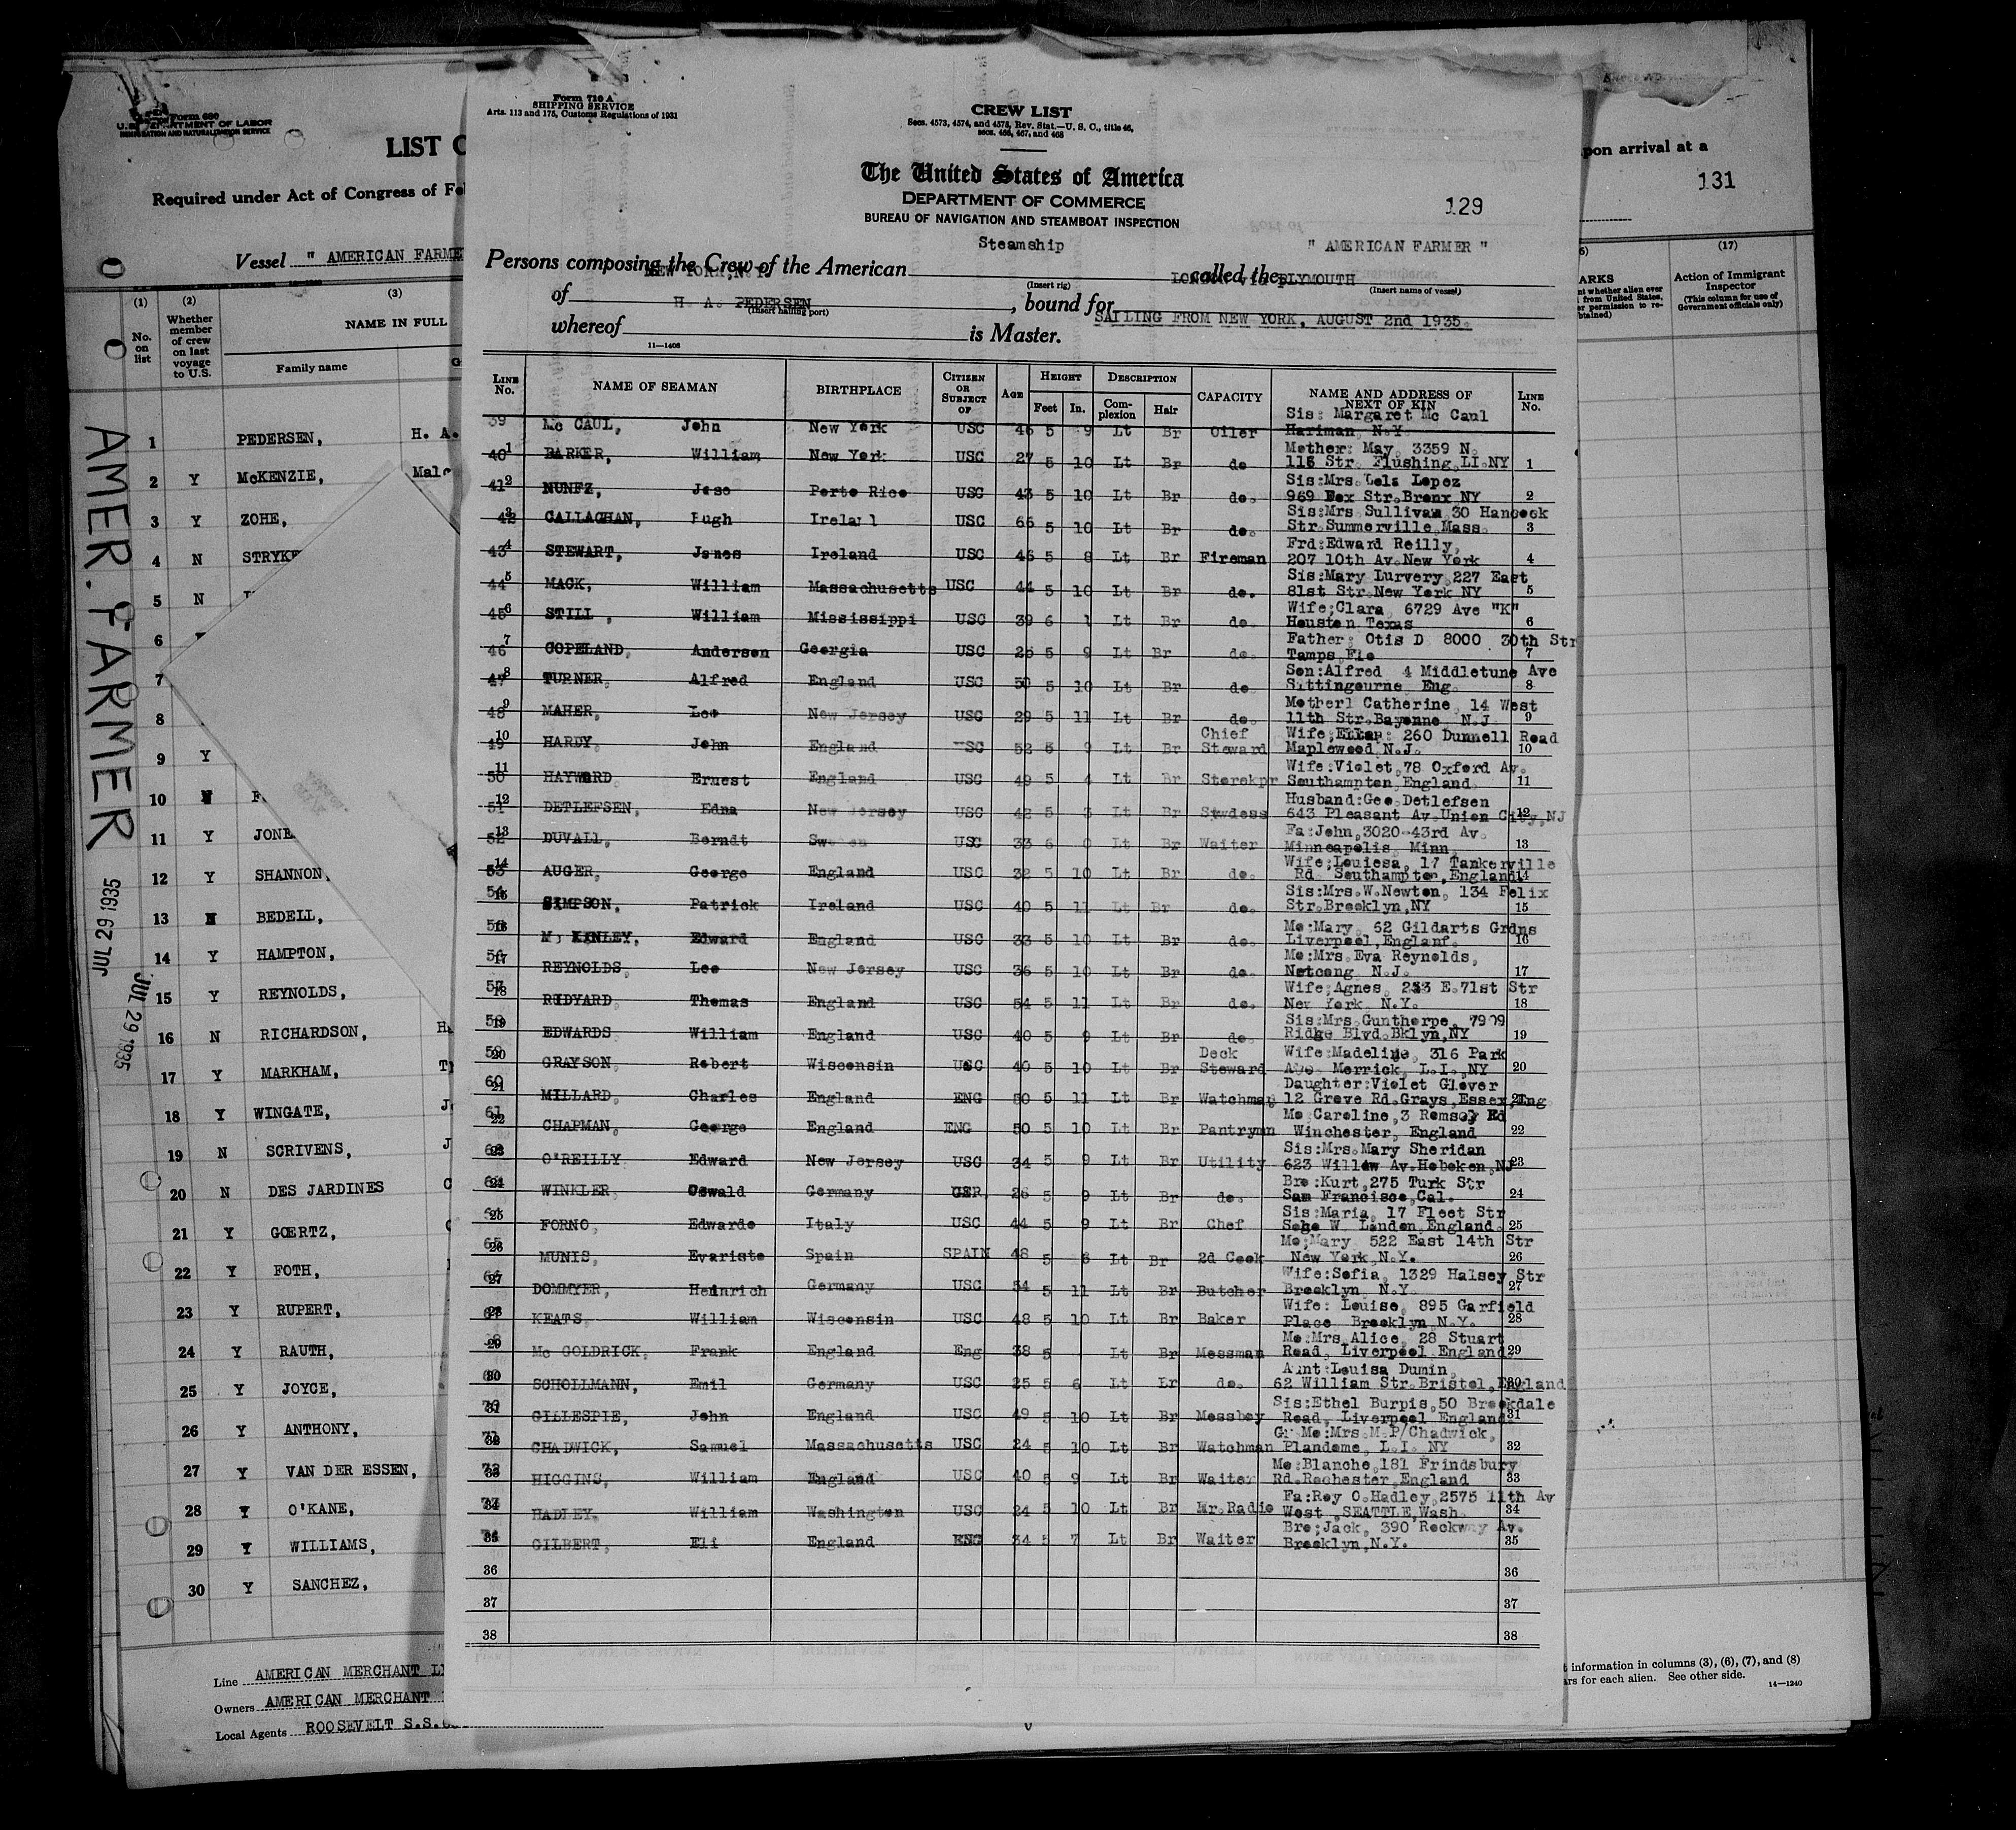 Form 710 A
SHIPPING SERVICE
Arts. 113 and 175, Customs Regulations of 1931
CREW LIST
Secs. 4573, 4574, and 4575, Rev. Stat.—U. S. C., title 46,
secs. 466, 467, and 468
The United States of America
DEPARTMENT OF COMMERCE
BUREAU OF NAVIGATION AND STEAMBOAT INSPECTION
129
Persons composing the Crew of the American Steamship called the " AMERICAN FARMER "
(Insert rig) (Insert name of vessel)
of NEW YORK, N.Y. , bound for LONDON via PLYMOUTH
(Insert hailing port)
whereof H. A. PEDERSEN is Master. SAILING FROM NEW YORK, AUGUST 2nd 1935.
11—1406
LINE No. NAME OF SEAMAN BIRTHPLACE CITIZEN OR SUBJECT OF AGE HEIGHT Feet In. DESCRIPTION Complexion Hair CAPACITY NAME AND ADDRESS OF NEXT OF KIN LINE No.
39 Mc CAUL, John New York USC 46 5 9 Lt Br Oiler Sis: Margaret Mc Caul
Hariman, N.Y.
40 1 BARKER, William New York USC 27 5 10 Lt Br do Mother: May, 3359 N.
Str. Flushing, LI.NY 1
41 2 NUNEZ, Jose Porto Rico USC 43 5 10 Lt Br do. Sis:Mrs. Lola Lopez
969 Fox Str.Bronx NY 2
42 3 CALLAGHAN, Hugh Ireland USC 66 5 10 Lt Br do. Sis:Mrs Sullivan 30 Hancock
Str.Summerville,Mass. 3
43 4 STEWART, James Ireland USC 46 5 8 Lt Br Fireman Frd:Edward Reilly,
207 10th Av.New York 4
44 5 MACK, William Massachusetts USC 44 5 10 Lt Br do. Sis:Mary Lurvery,227 East
81st Str.New York NY 5
45 6 STILL, William Mississippi USC 39 6 1 Lt Br do. Wife;Clara, 6729 Ave "K"
Houston Texas 6
46 7 COPELAND, Anderson Georgia USC 26 5 9 Lt Br do. Father: Otis D 8000 30th Str
Tampa, Fla 7
47 8 TURNER, Alfred England USC 50 5 10 Lt Br do. Son:Alfred 4 Middletune Ave
Sittingourne, Eng. 8
48 9 MAHER, Leo New Jersey USC 29 5 11 Lt Br do. Mother: Catherine, 14 West
11th Str.Bayonne, N.J. 9
49 10 HARDY, John England USC 52 5 9 Lt Br Chief Steward Wife; 260 Dunnell Road
Maplewood N.J. 10
50 11 HAYWARD Ernest England USC 49 5 4 Lt Br Storekpr Wife:Violet,78 Oxford Av.
Southampton, England 11
51 12 DETLEFSEN, Edna New Jersey USC 42 5 3 Lt Br Stwdess Husband:Geo.Detlefsen
643 Pleasant Av.Union City,NJ 12
52 13 DUVALL, Berndt Sweden USC 33 6 0 Lt Br Waiter Fa:John,3020-43rd Av.
Minneapolis, Minn. 13
53 14 AUGER, George England USC 32 5 10 Lt Br do. Wife;Louiesa, 17 Tankerville
Rd. Southampton,England 14
54 15 SIMPSON, Patrick Ireland USC 40 5 11 Lt Br do. Sis:Mrs.W.Newton, 134 Felix
Str.Brooklyn,NY 15
16 Mc KINLEY, Edward England USC 33 5 10 Lt Br do. Mo:Mary, 62 Gildarts Grdns
Liverpool,Englanf. 16
56 17 REYNOLDS, Leo New Jersey USC 36 5 10 Lt Br do. Mo:Mrs.Eva Reynolds,
Netcong N.J. 17
57 18 RUDYARD, Thomas England USC 54 5 11 Lt Br do. Wife;Agnes, E.71st Str
New York N.Y. 18
58 19 EDWARDS William England USC 40 5 9 Lt Br do. Sis:Mrs.Gunthorpe, 7909
Ridge Blvd.Bklyn,NY 19
59 20 GRAYSON, Robert Wisconsin USC 40 5 10 Lt Br Deck Steward Wife:Madeline, 316 Park
Ave. Merrick, L.I.,NY 20
60 21 MILLARD, Charles England ENG 50 5 11 Lt Br Watchman Daughter:Violet Glover
12 Grove Rd.Grays,Essex,Eng 21
61 22 CHAPMAN, George England ENG 50 5 10 Lt Br Pantrymn Mo Caroline,3 Romsey Rd
Winchester, England 22
62 23 O'REILLY Edward New Jersey USC 34 5 9 Lt Br Utility Sis:Mrs.Mary Sheridan
623 Willow Av.Hoboken,NJ 23
24 WINKLER, Oswald Germany GER. 26 5 9 Lt Br do. Bro:Kurt,275 Turk Str
San Francisco,Cal. 24
64 25 FORNO, Edwardo Italy USC 44 5 9 Lt Br Chef Sis:Maria, 17 Fleet Str
Soho W. London,England. 25
65 26 MUNIS, Evaristo Spain SPAIN 48 5 6 Lt Br 2d Cook Mo;Mary 522 East 14th Str
New York,N.Y. 26
66 27 DOMMYER, Heinrich Germany USC 54 5 11 Lt Br Butcher Wife:Sofia, 1329 Halsey Str
Brooklyn N.Y. 27
67 28 KEATS, William Wisconsin USC 48 5 10 Lt Br Baker Wife: Louise, 895 Garfield
Place Brooklyn,N.Y. 28
29 Mc GOLDRICK, Frank England Eng 38 5 Lt Br Messman Mo:Mrs.Alice, 28 Stuart
Road, Liverpool England. 29
30 SCHOLLMANN, Emil Germany USC 25 5 6 Lt Lr do. Aunt:Louisa Dumin,
62 William Str.Bristol,England 30
70 31 GILLESPIE, John England USC 49 5 10 Lt Br Messboy Sis:Ethel Burpis,50 Brookdale
Road, Liverpool England. 31
71 32 CHADWICK, Samuel Massachusetts USC 24 5 10 Lt Br Watchman Gr Mo:Mrs M P/Chadwick,
Plandome, L.I. NY 32
72 33 HIGGINS, William England USC 40 5 9 Lt Br Waiter Mo:Blanche,181 Frindsbury
Rd.Rochester,England 33
73 34 HADLEY, William Washington USC 24 5 10 Lt Br Mr.Radio Fa:Roy O.Hadley,2575 11th Av
West ,SEATTLE,Wash. 34
74 35 GILBERT, Eli England ENG 34 5 7 Lt Br Waiter Bro;Jack, 390 Rockway Av.
Brooklyn,N.Y. 35
36 36
37 37
38 38
Form 680
U.S. DEPARTMENT OF LABOR
IMMIGRATION AND NATURALIZATION SERVICE
LIST O
Required under Act of Congress of Fe
Vessel " AMERICAN FARME
(1) (2) (3)
No. on list
Whether member of crew on last voyage to U.S.
NAME IN FULL
Family name G
1 PEDERSEN, H. A.
2 Y McKENZIE, Malc
3 Y ZOHE,
4 N STRYKE
5 N
6
7
8
9 Y
10 N
11 Y JONE
12 Y SHANNON,
13 N BEDELL,
14 Y HAMPTON,
15 Y REYNOLDS,
16 N RICHARDSON,
17 Y MARKHAM,
18 Y WINGATE,
19 N SCRIVENS,
20 N DES JARDINES
21 Y GOERTZ,
22 Y FOTH,
23 Y RUPERT,
24 Y RAUTH,
25 Y JOYCE,
26 Y ANTHONY,
27 Y VAN DER ESSEN,
28 Y O'KANE,
29 Y WILLIAMS,
30 Y SANCHEZ,
Line AMERICAN MERCHANT LI
Owners AMERICAN MERCHANT
Local Agents ROOSEVELT S.S.
AMER. FARMER
JUL 29 1935
JUL 29 1935
pon arrival at a
131
(17)
ARKS
nt whether alien ever
from United States,
er permission to re-
btained)
Action of Immigrant Inspector
(This column for use of Government officials only)
t information in columns (3), (6), (7), and (8)
ars for each alien. See other side.
14—1240